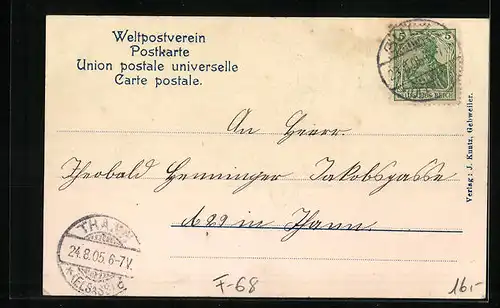 Weltpostverein
Postkarte
Union postale universelle
Carte postale.
5
An Herrn
Theobald Henninger Jakobsgasse
in Thann.
Verlag: J. Kuntz, Gebweiler.
THANN
24.8.05. 6-7V.
*(ELSASS) C.
F-68
16.-